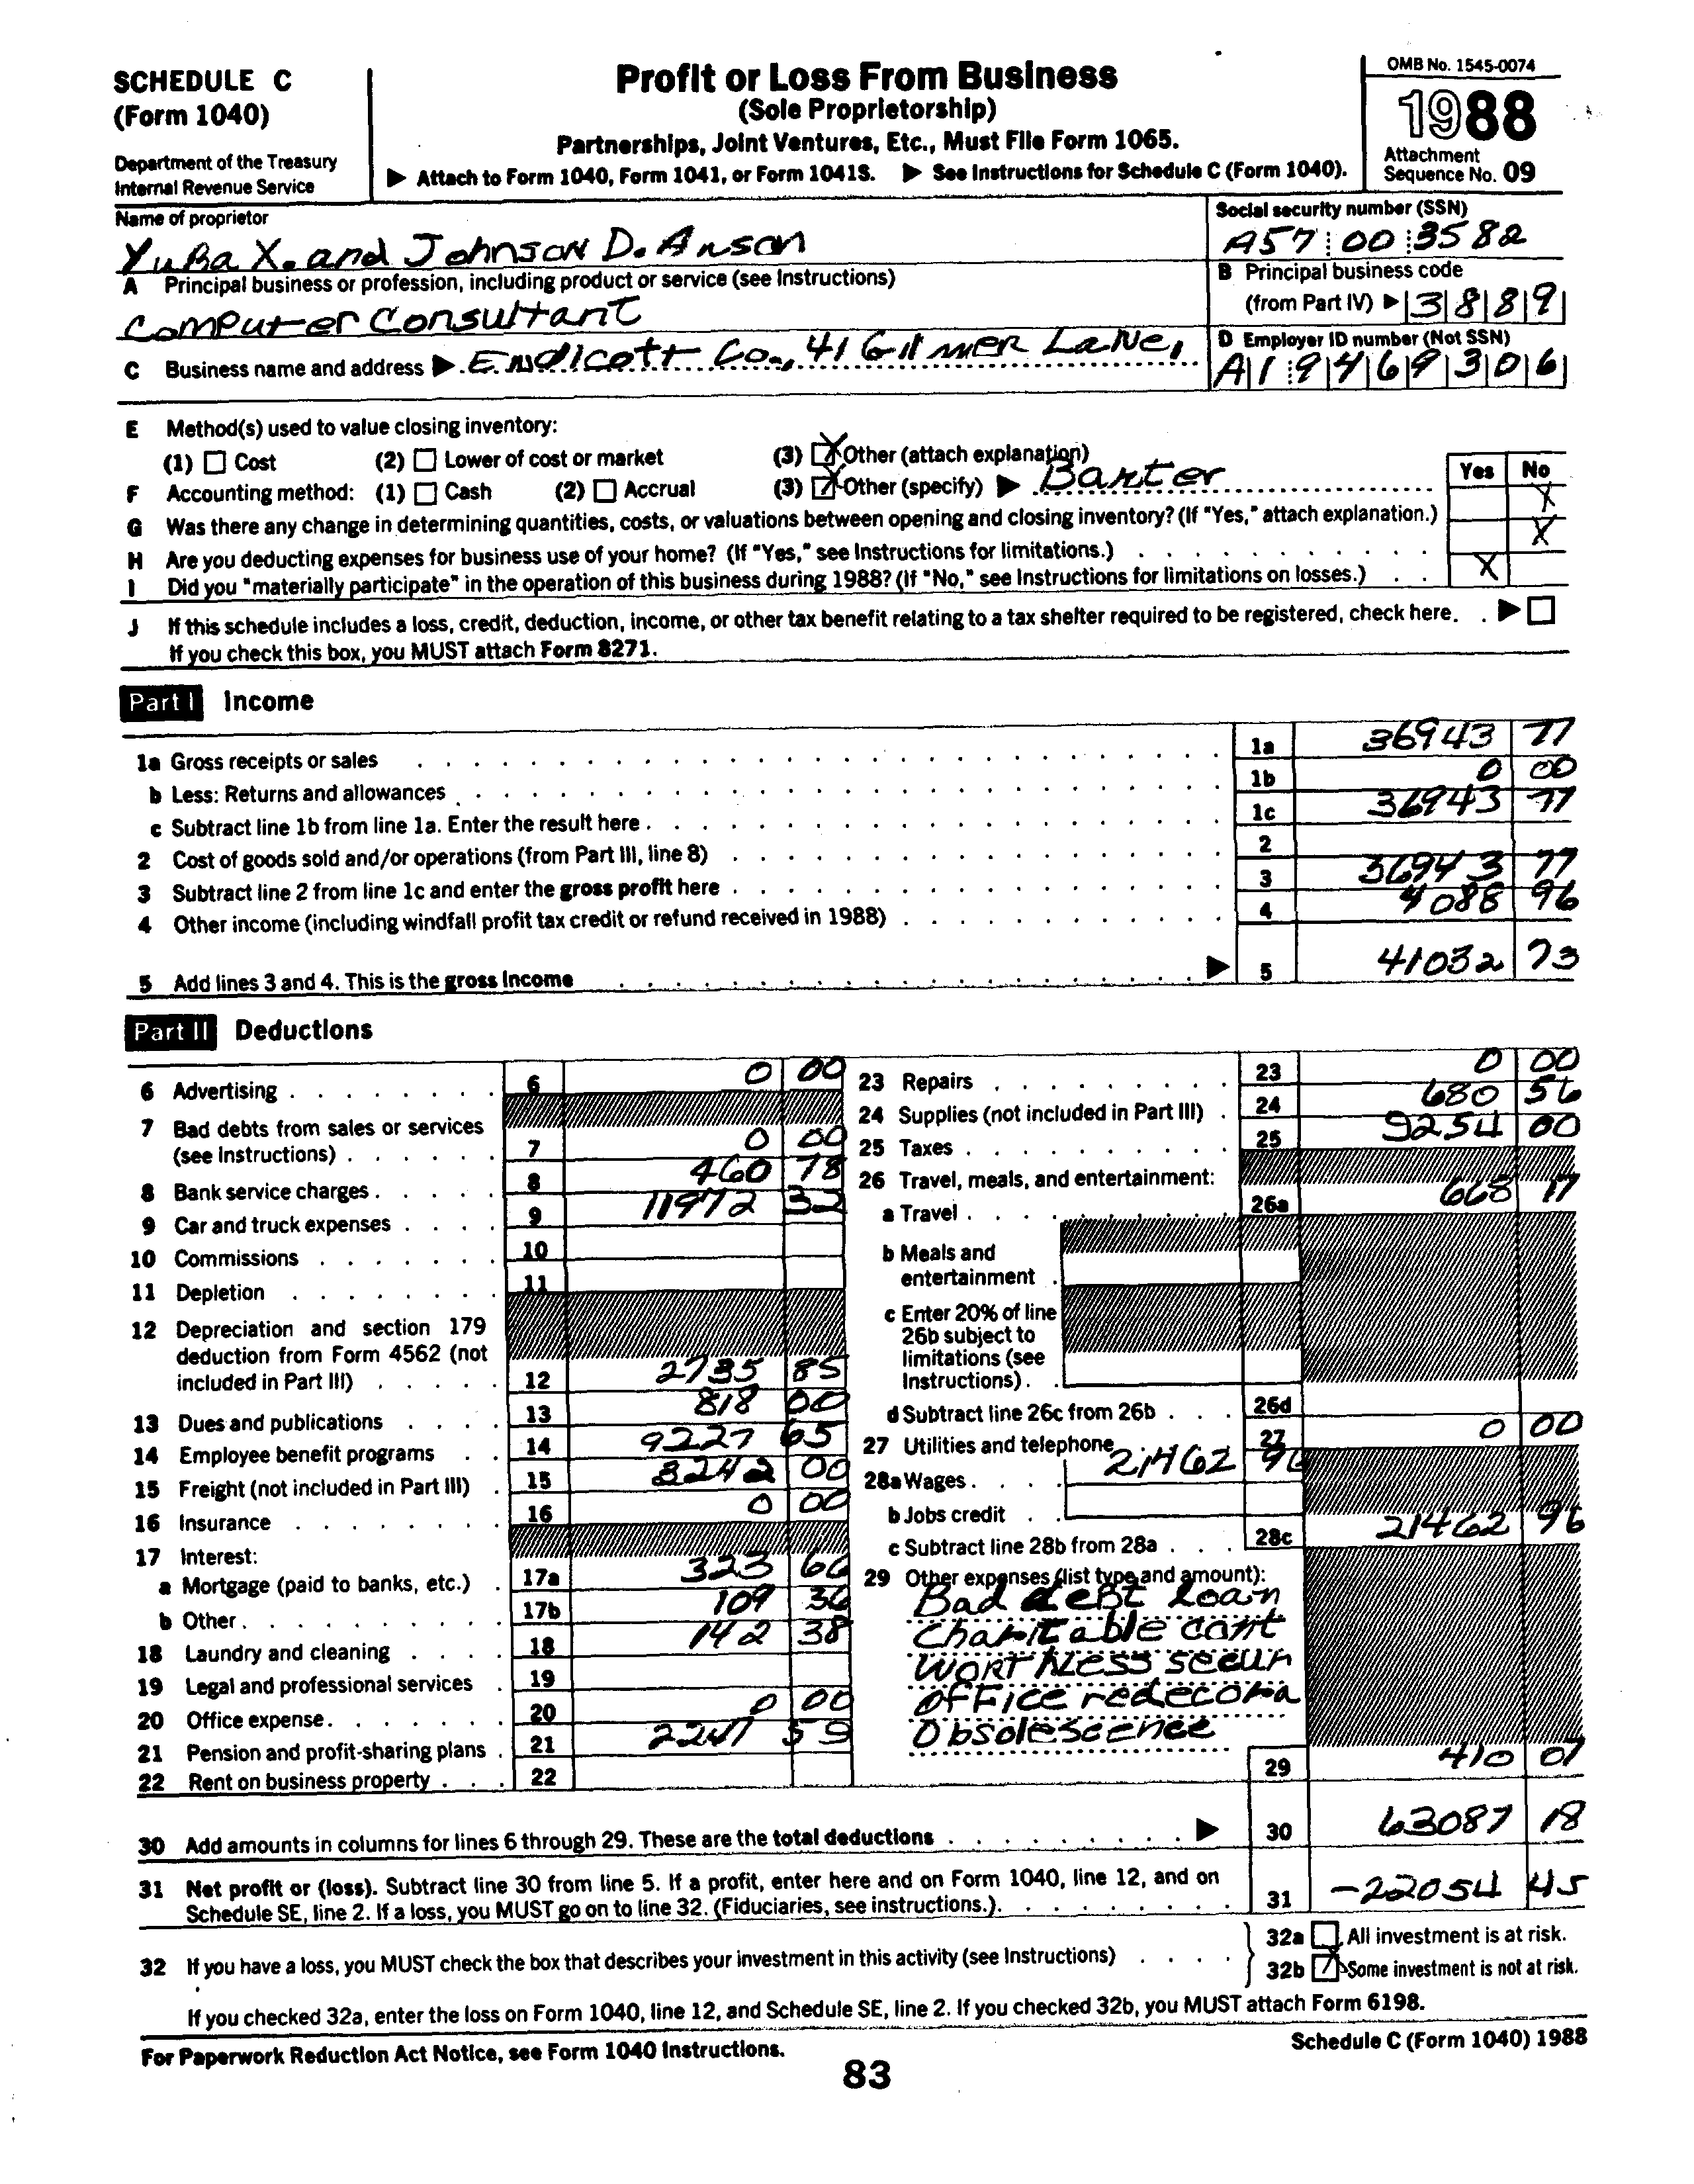 SCHEDULE C
(Form 1040)
Department of the Treasury
Internal Revenue Service
Profit or Loss From Business
(Sole Proprietorship)
Partnerships, Joint Ventures, Etc., Must File Form 1065.
▶ Attach to Form 1040, Form 1041, or Form 1041S. ▶ See Instructions for Schedule C (Form 1040).
OMB No. 1545-0074
1988
Attachment
Sequence No. 09
Name of proprietor
Yuba X. and Johnson D. Anson
Social security number (SSN)
A57 00 3582
A Principal business or profession, including product or service (see Instructions)
Computer Consultant
B Principal business code
(from Part IV) ▶ 3889
C Business name and address ▶ Endicott Co., 41 Gilmer Lane,
D Employer ID number (Not SSN)
A19469306
E Method(s) used to value closing inventory:
(1) Cost (2) Lower of cost or market (3) X Other (attach explanation)
F Accounting method: (1) Cash (2) Accrual (3) X Other (specify) ▶ Barter
Yes No
G Was there any change in determining quantities, costs, or valuations between opening and closing inventory? (If "Yes," attach explanation.) X
H Are you deducting expenses for business use of your home? (If "Yes," see Instructions for limitations.) X
I Did you "materially participate" in the operation of this business during 1988? (If "No," see Instructions for limitations on losses.) X
J If this schedule includes a loss, credit, deduction, income, or other tax benefit relating to a tax shelter required to be registered, check here. ▶
If you check this box, you MUST attach Form 8271.
Part I Income
1a Gross receipts or sales 1a 36943 77
b Less: Returns and allowances 1b 0 00
c Subtract line 1b from line 1a. Enter the result here 1c 36943 77
2 Cost of goods sold and/or operations (from Part III, line 8) 2
3 Subtract line 2 from line 1c and enter the gross profit here 3 36943 77
4 Other income (including windfall profit tax credit or refund received in 1988) 4 4088 96
5 Add lines 3 and 4. This is the gross income ▶ 5 41032 73
Part II Deductions
6 Advertising 6 0 00
7 Bad debts from sales or services
(see Instructions) 7 0 00
8 Bank service charges 8 460 78
9 Car and truck expenses 9 11972 32
10 Commissions 10
11 Depletion 11
12 Depreciation and section 179
deduction from Form 4562 (not
included in Part III) 12 2735 85
13 Dues and publications 13 818 00
14 Employee benefit programs 14 9227 65
15 Freight (not included in Part III) 15 8242 00
16 Insurance 16 0 00
17 Interest:
a Mortgage (paid to banks, etc.) 17a 323 66
b Other 17b 109 36
18 Laundry and cleaning 18 142 38
19 Legal and professional services 19
20 Office expense 20 0 00
21 Pension and profit-sharing plans 21 59
22 Rent on business property 22
23 Repairs 23 0 00
24 Supplies (not included in Part III) 24 680 56
25 Taxes 25 9254 00
26 Travel, meals, and entertainment:
a Travel 26a 668 17
b Meals and
entertainment
c Enter 20% of line
26b subject to
limitations (see
Instructions).
d Subtract line 26c from 26b 26d
27 Utilities and telephone 27 0 00
28a Wages 21462 96
b Jobs credit
c Subtract line 28b from 28a 28c 21462 96
29 Other expenses (list type and amount):
Bad debt Loan
Charitable cont
Worthless secur
office redecora
Obsolescence
29 410 07
30 Add amounts in columns for lines 6 through 29. These are the total deductions ▶ 30 63087 18
31 Net profit or (loss). Subtract line 30 from line 5. If a profit, enter here and on Form 1040, line 12, and on
Schedule SE, line 2. If a loss, you MUST go on to line 32. (Fiduciaries, see instructions.) 31 -22054 45
32 If you have a loss, you MUST check the box that describes your investment in this activity (see Instructions)
32a All investment is at risk.
32b X Some investment is not at risk.
If you checked 32a, enter the loss on Form 1040, line 12, and Schedule SE, line 2. If you checked 32b, you MUST attach Form 6198.
For Paperwork Reduction Act Notice, see Form 1040 Instructions.
Schedule C (Form 1040) 1988
83